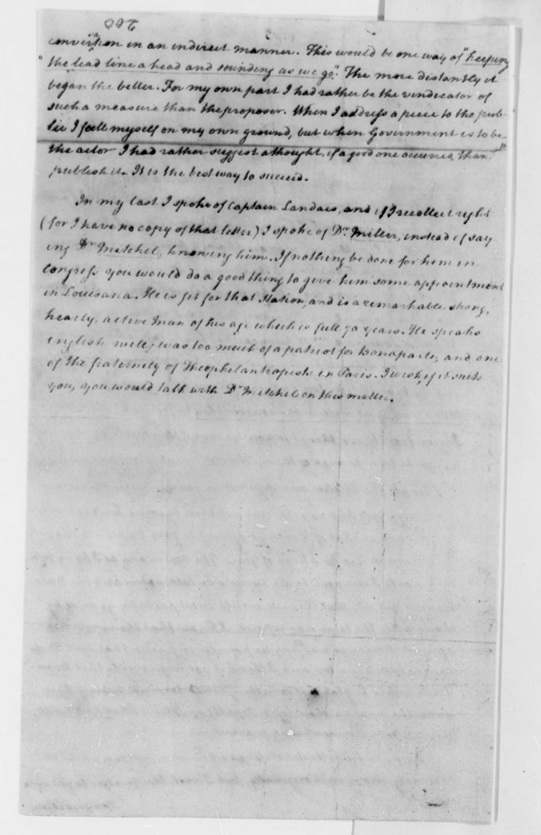 200
conversion in an indirect manner. This would be one way of "keeping
the lead line a head and sounding as we go". The more distantly it
began the better. For my own part I had rather be the vindicator of
such a measure than the proposer. When I address a piece to the pub-
lic I feel myself on my own ground, but when Government is to be
the actor I had rather suggest a thought, if a good one occurred, than
publish it. It is the best way to succeed.
In my last I spoke of Captain Landais, and if I recollect right
(for I have no copy of that letter) I spoke of Dr. Miller, instead of say-
ing Dr Mitchel, knowing him. If nothing be done for him in
Congress you would do a good thing to give him some appointment
in Louisiana. He is fit for that station, and is a remarkable strong,
hearty, active man of his age which is full 70 years. He speaks
english well; was too much of a patriot for bonaparte, and one
of the fraternity of Theophilanthropists in Paris. I wish, if it suits
you, you would talk with Dr Mitchel on this matter.